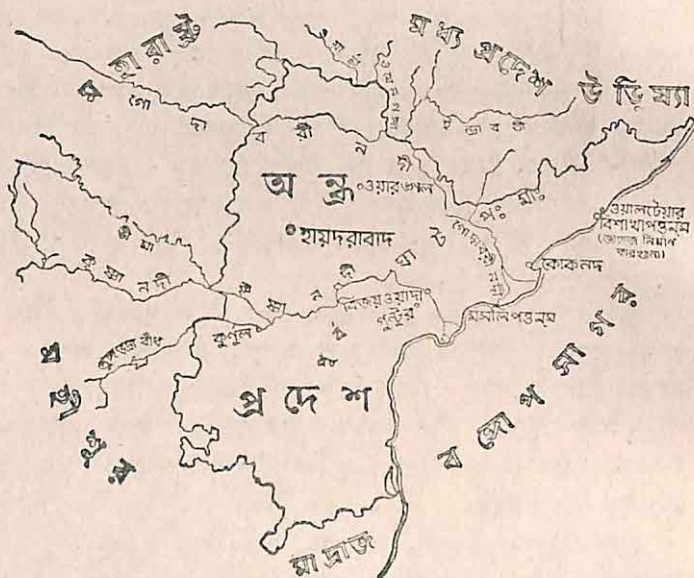 মহারাষ্ট্র
মধ্য প্রদেশ
উড়িষ্যা
গোদাবরী নদী
ইন্দ্রাবতী
অন্ধ্র
ওয়ারঙ্গল
হায়দরাবাদ
পঃ
মাঃ
ঘাট
গোদাবরী নদী
ওয়ালটেয়ার
বিশাখাপত্তনম
(জাহাজ নির্মাণ
কারখানা)
কোকনদ
ভীমা
কৃষ্ণা নদী
কৃষ্ণা নদী
বিজয়ওয়াদা
গুন্টুর
মসলিপত্তনম
কুর্ণুল
তুঙ্গভদ্রা বাঁধ
প্রদেশ
মহীশূর
বঙ্গোপসাগর
মাদ্রাজ